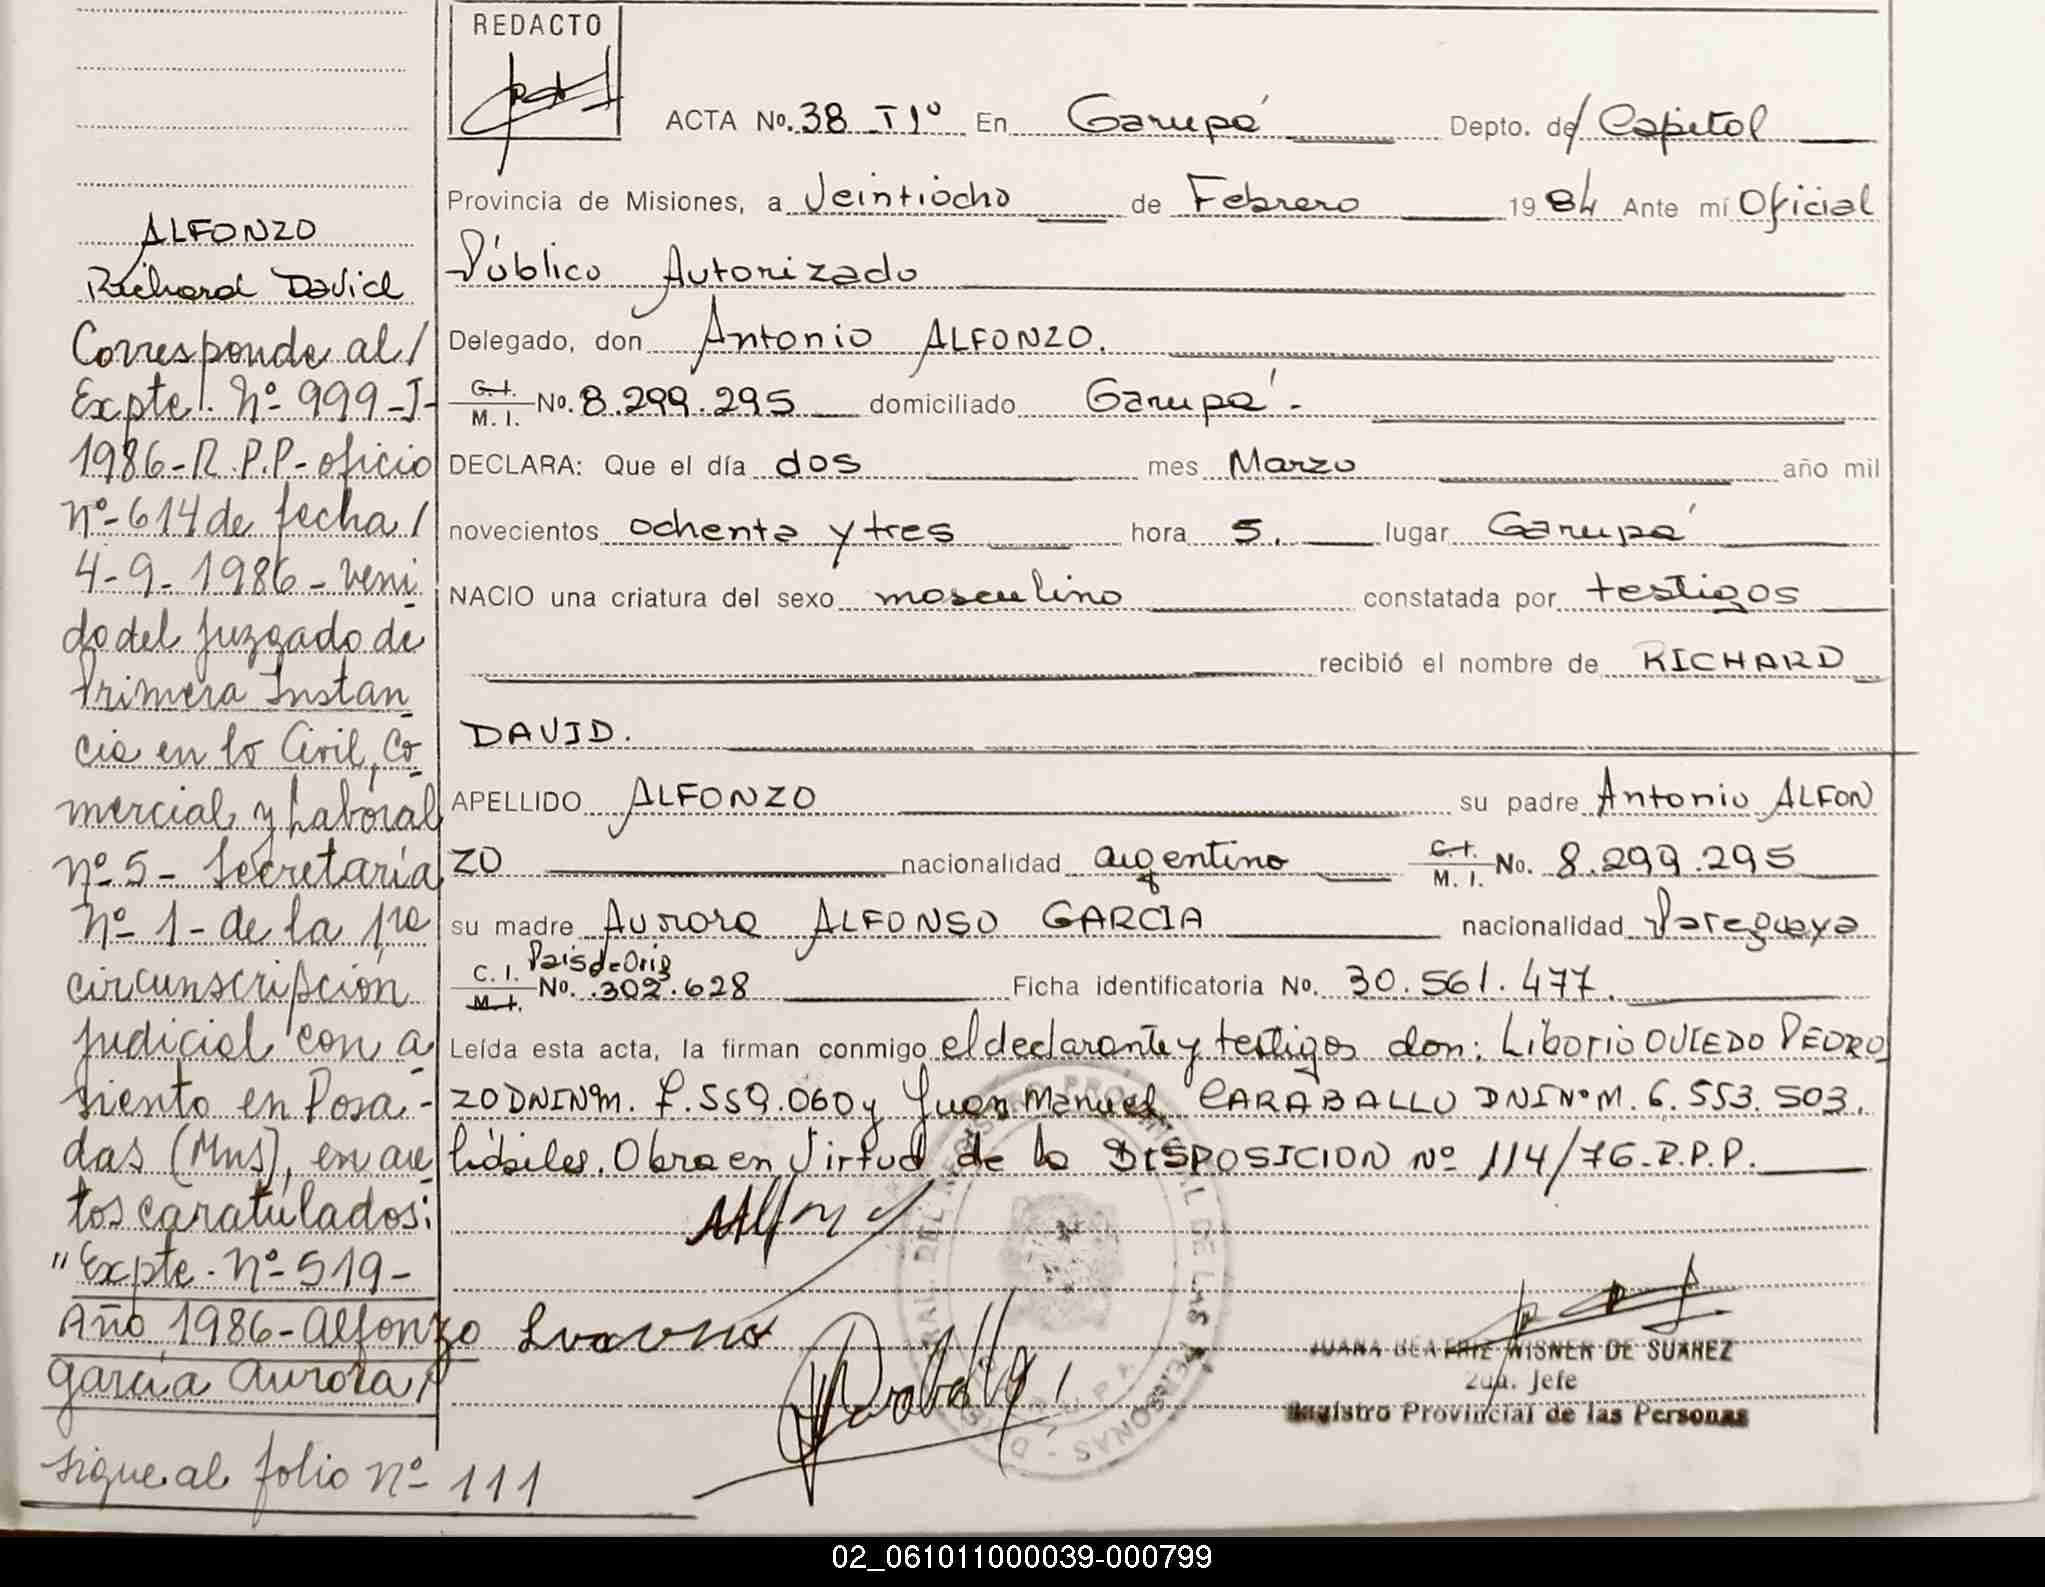 REDACTO
ACTA No. 38 TIº En Garupá Depto. de/ Capital
Provincia de Misiones, a Veintiocho de Febrero 1984 Ante mí Oficial
Público Autorizado
Delegado, don Antonio ALFONZO.
C.I. M.I. No. 8.299.295 domiciliado Garupá.-
DECLARA: Que el día dos mes Marzo año mil
novecientos ochenta y tres hora 5. lugar Garupá
NACIO una criatura del sexo masculino constatada por testigos
recibió el nombre de RICHARD
DAVID.
APELLIDO ALFONZO su padre Antonio ALFON
ZO nacionalidad argentino C.I. M.I. No. 8.299.295
su madre Aurora ALFONSO GARCIA nacionalidad Paraguaya
C.I. M.I. País de Orig No. 302.628 Ficha identificatoria No. 30.561.477.
Leída esta acta, la firman conmigo el declarante y testigos don: Liborio OVIEDO PEDRO
ZO DNI Nº M. 7.559.060 y Juan Manuel CARABALLO DNI Nº M. 6.553.503.
hábiles. Obra en Virtud de la DISPOSICION Nº 114/76-R.P.P.
JUANA BEATRIZ WISNER DE SUAREZ
2da. Jefe
Registro Provincial de las Personas
ALFONZO
Richard David
Corresponde al/
Expte. Nº 999-J-
1986-R.P.P-oficio
Nº-614 de fecha/
4-9-1986-veni
do del Juzgado de
Primera Instan
cia en lo Civil, Co
mercial y Laboral
Nº 5- Secretaría
Nº 1- de la 1ra
circunscripción
judicial con a
siento en Posa-
das (Mns), en au
tos caratulados:
"Expte. Nº 519-
Año 1986-Alfonzo
García Aurora/
sigue al folio Nº 111
02_061011000039-000799